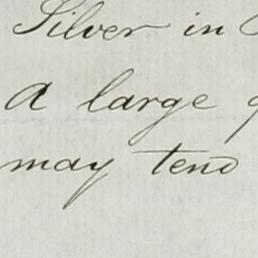 Silver in
a large
may tend